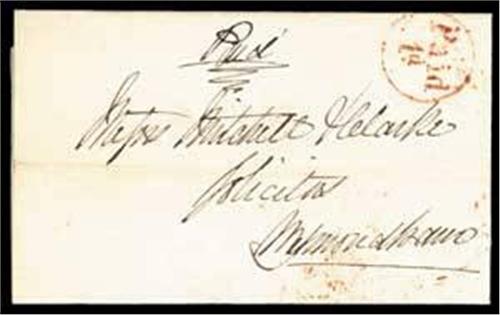 Paid
Paid
Messrs Mitchell & Clarke
Solicitors
Wymondham